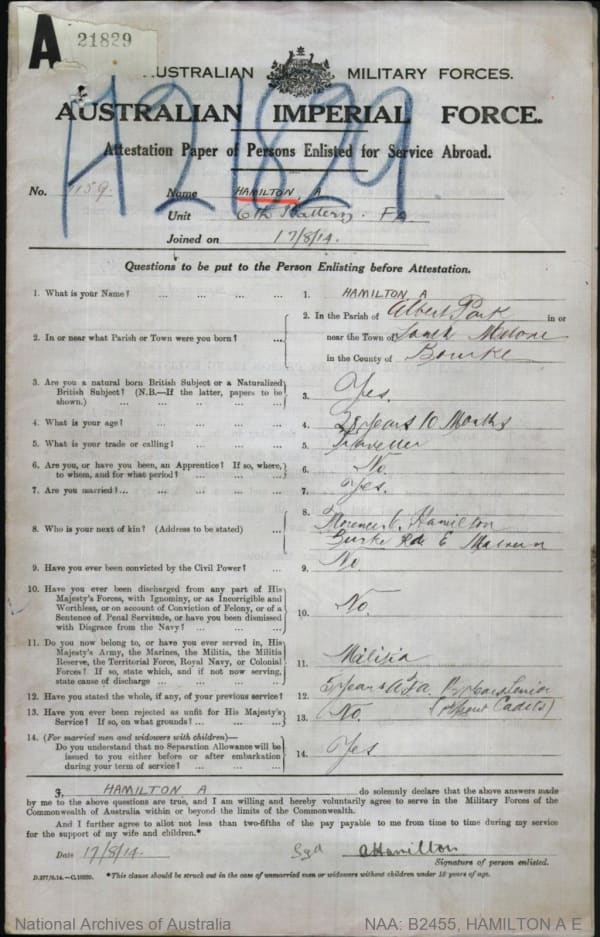 A 21829
AUSTRALIAN MILITARY FORCES.
AUSTRALIAN IMPERIAL FORCE.
A21829
Attestation Paper of Persons Enlisted for Service Abroad.
No. 1159 Name HAMILTON, A
Unit 6th Battery. FA
Joined on 17/8/14.
Questions to be put to the Person Enlisting before Attestation.
1. What is your Name? ... ... ... ... 1. HAMILTON A
2. In or near what Parish or Town were you born? ... 2. In the Parish of Albert Park in or
near the Town of South Melbne
in the County of Bourke
3. Are you a natural born British Subject or a Naturalized
British Subject? (N.B.—If the latter, papers to be
shown.) ... ... ... ... ... 3. Yes.
4. What is your age? ... ... ... ... 4. 28 years 10 Months
5. What is your trade or calling? ... ... ... 5. Traveller
6. Are you, or have you been, an Apprentice? If so, where,
to whom, and for what period? ... ... ... 6. No.
7. Are you married?... ... ... ... ... 7. Yes.
8. Who is your next of kin? (Address to be stated) ... 8. Florence Hamilton
Burke Rde E Malvern
9. Have you ever been convicted by the Civil Power? ... 9. No
10. Have you ever been discharged from any part of His
Majesty's Forces, with Ignominy, or as Incorrigible and
Worthless, or on account of Conviction of Felony, or of a
Sentence of Penal Servitude, or have you been dismissed
with Disgrace from the Navy? ... ... ... 10. No.
11. Do you now belong to, or have you ever served in, His
Majesty's Army, the Marines, the Militia, the Militia
Reserve, the Territorial Force, Royal Navy, or Colonial
Forces? If so, state which, and if not now serving,
state cause of discharge ... ... ... ... 11. Militia
12. Have you stated the whole, if any, of your previous service? 12. years AFA Senior
Cadets)
13. Have you ever been rejected as unfit for His Majesty's
Service? If so, on what grounds? ... ... ... 13. No.
14. (For married men and widowers with children)—
Do you understand that no Separation Allowance will be
issued to you either before or after embarkation
during your term of service? ... ... ... 14. Yes
I, HAMILTON A do solemnly declare that the above answers made
by me to the above questions are true, and I am willing and hereby voluntarily agree to serve in the Military Forces of the
Commonwealth of Australia within or beyond the limits of the Commonwealth.
And I further agree to allot not less than two-fifths of the pay payable to me from time to time during my service
for the support of my wife and children.*
Date 17/8/14. Sgd AHamilton
Signature of person enlisted.
D.377/8.14.—C.10920. *This clause should be struck out in the case of unmarried men or widowers without children under 18 years of age.
National Archives of Australia NAA: B2455, HAMILTON A E